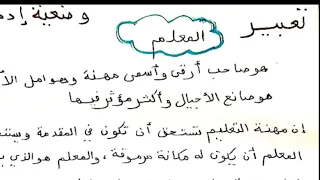 تعبير وضعية إدم
المعلم
هو صاحب أرقى وأسمى مهنة وهو حامل الأ
هو صانع الأجيال وأكثر مؤثر فيها
إن مهنة التعليم تستحق أن تكون في المقدمة ويستحق
المعلم أن يكون له مكانة مرموقة، والمعلم هو الذي يـ